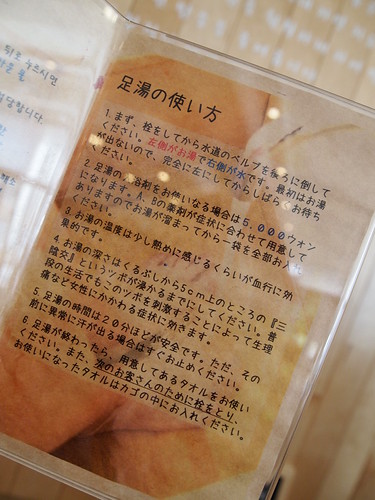 足湯の使い方
1.まず、栓をしてから水道のベルブを後ろに倒して
ください。左側がお湯で右側が水です。最初はお湯
が出ないので、完全に左にしてからしばらくお待ち
ください。
2.足湯の入浴剤をお使いなる場合は5,000ウォン
になります。A、Bの薬剤が症状に合わせて用意して
ありますのでお湯が溜まってから一袋を全部お入れ
ください。
3.お湯の温度は少し熱めに感じるくらいが血行に効
果的です。
4.お湯の深さはくるぶしから5cm上のところの『三
陰交』というツボが浸かるまでにしてください。普
段の生活でもこのツボを刺激することによって生理
痛など女性にかかわる症状に効きます。
5.足湯の時間は20分ほどが安全です。ただ、その
前に異常に汗が出る場合はすぐお止めください。
6.足湯が終わったら、用意してあるタオルをお使い
ください。また、次のお客さんのために栓をとり、
お使いになったタオルはカゴの中にお入れください。